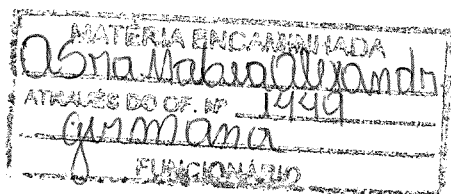 MATÉRIA ENCAMINHADA
a Sra. Alexandr
ATRAVÉS DO OF. Nº 1449
germana
FUNCIONÁRIO